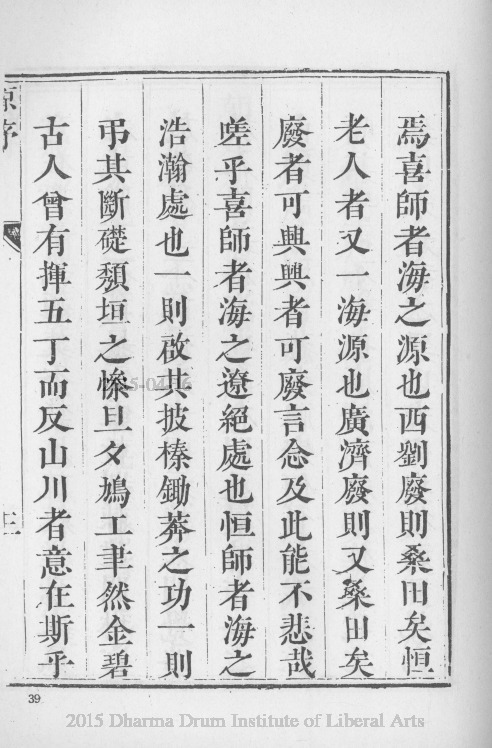 焉喜師者海之源也西劉廢則桑田矣恒
老人者又一海源也廣濟廢則又桑田矣
廢者可興興者可廢言念及此能不悲哉
嗟乎喜師者海之遼絕處也恒師者海之
浩瀚處也一則啟其披榛鋤莽之功一則
弔其斷礎頹垣之慘旦夕鳩工聿然金碧
古人曾有揮五丁而反山川者意在斯乎
序
三
39
2015 Dharma Drum Institute of Liberal Arts